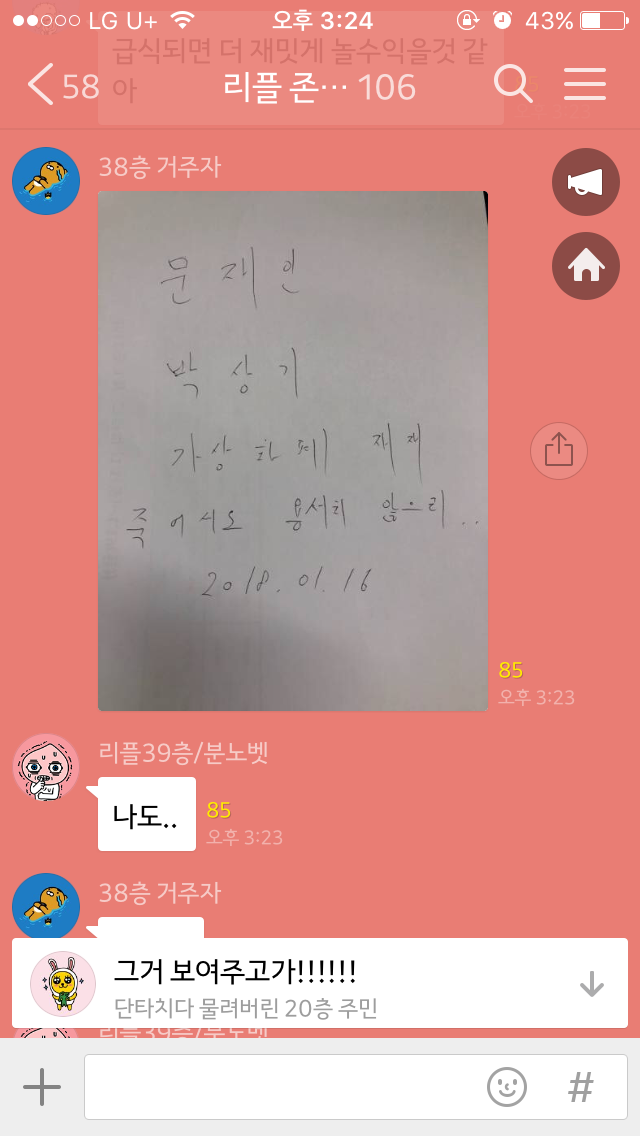 LG U+ 오후 3:24 43%
급식되면 더 재밋게 놀수익을것 같
아
58 리플 존… 106
오후 3:23
38층 거주자
문 재 인
박 상 기
가상 화 폐 재
죽 어서도 용서치 않으리..
2018. 01. 16
85
오후 3:23
리플39층/분노벳
나도..
85
오후 3:23
38층 거주자
그거 보여주고가!!!!!!
단타치다 물려버린 20층 주민
리플39층/분노벳
#